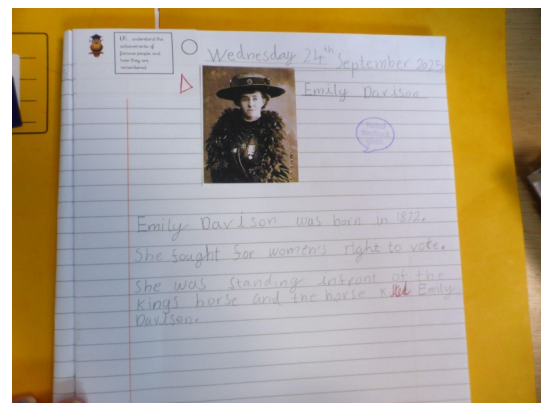 LI: understand the
achievements of
famous people and
how they are
remembered.
Wednesday 24th September 2025
Emily Davison
Verbal
Feedback
Given
Emily Davison was born in 1872.
She fought for women's right to vote.
She was standing infront of the
Kings horse and the horse killed Emily
Davison.